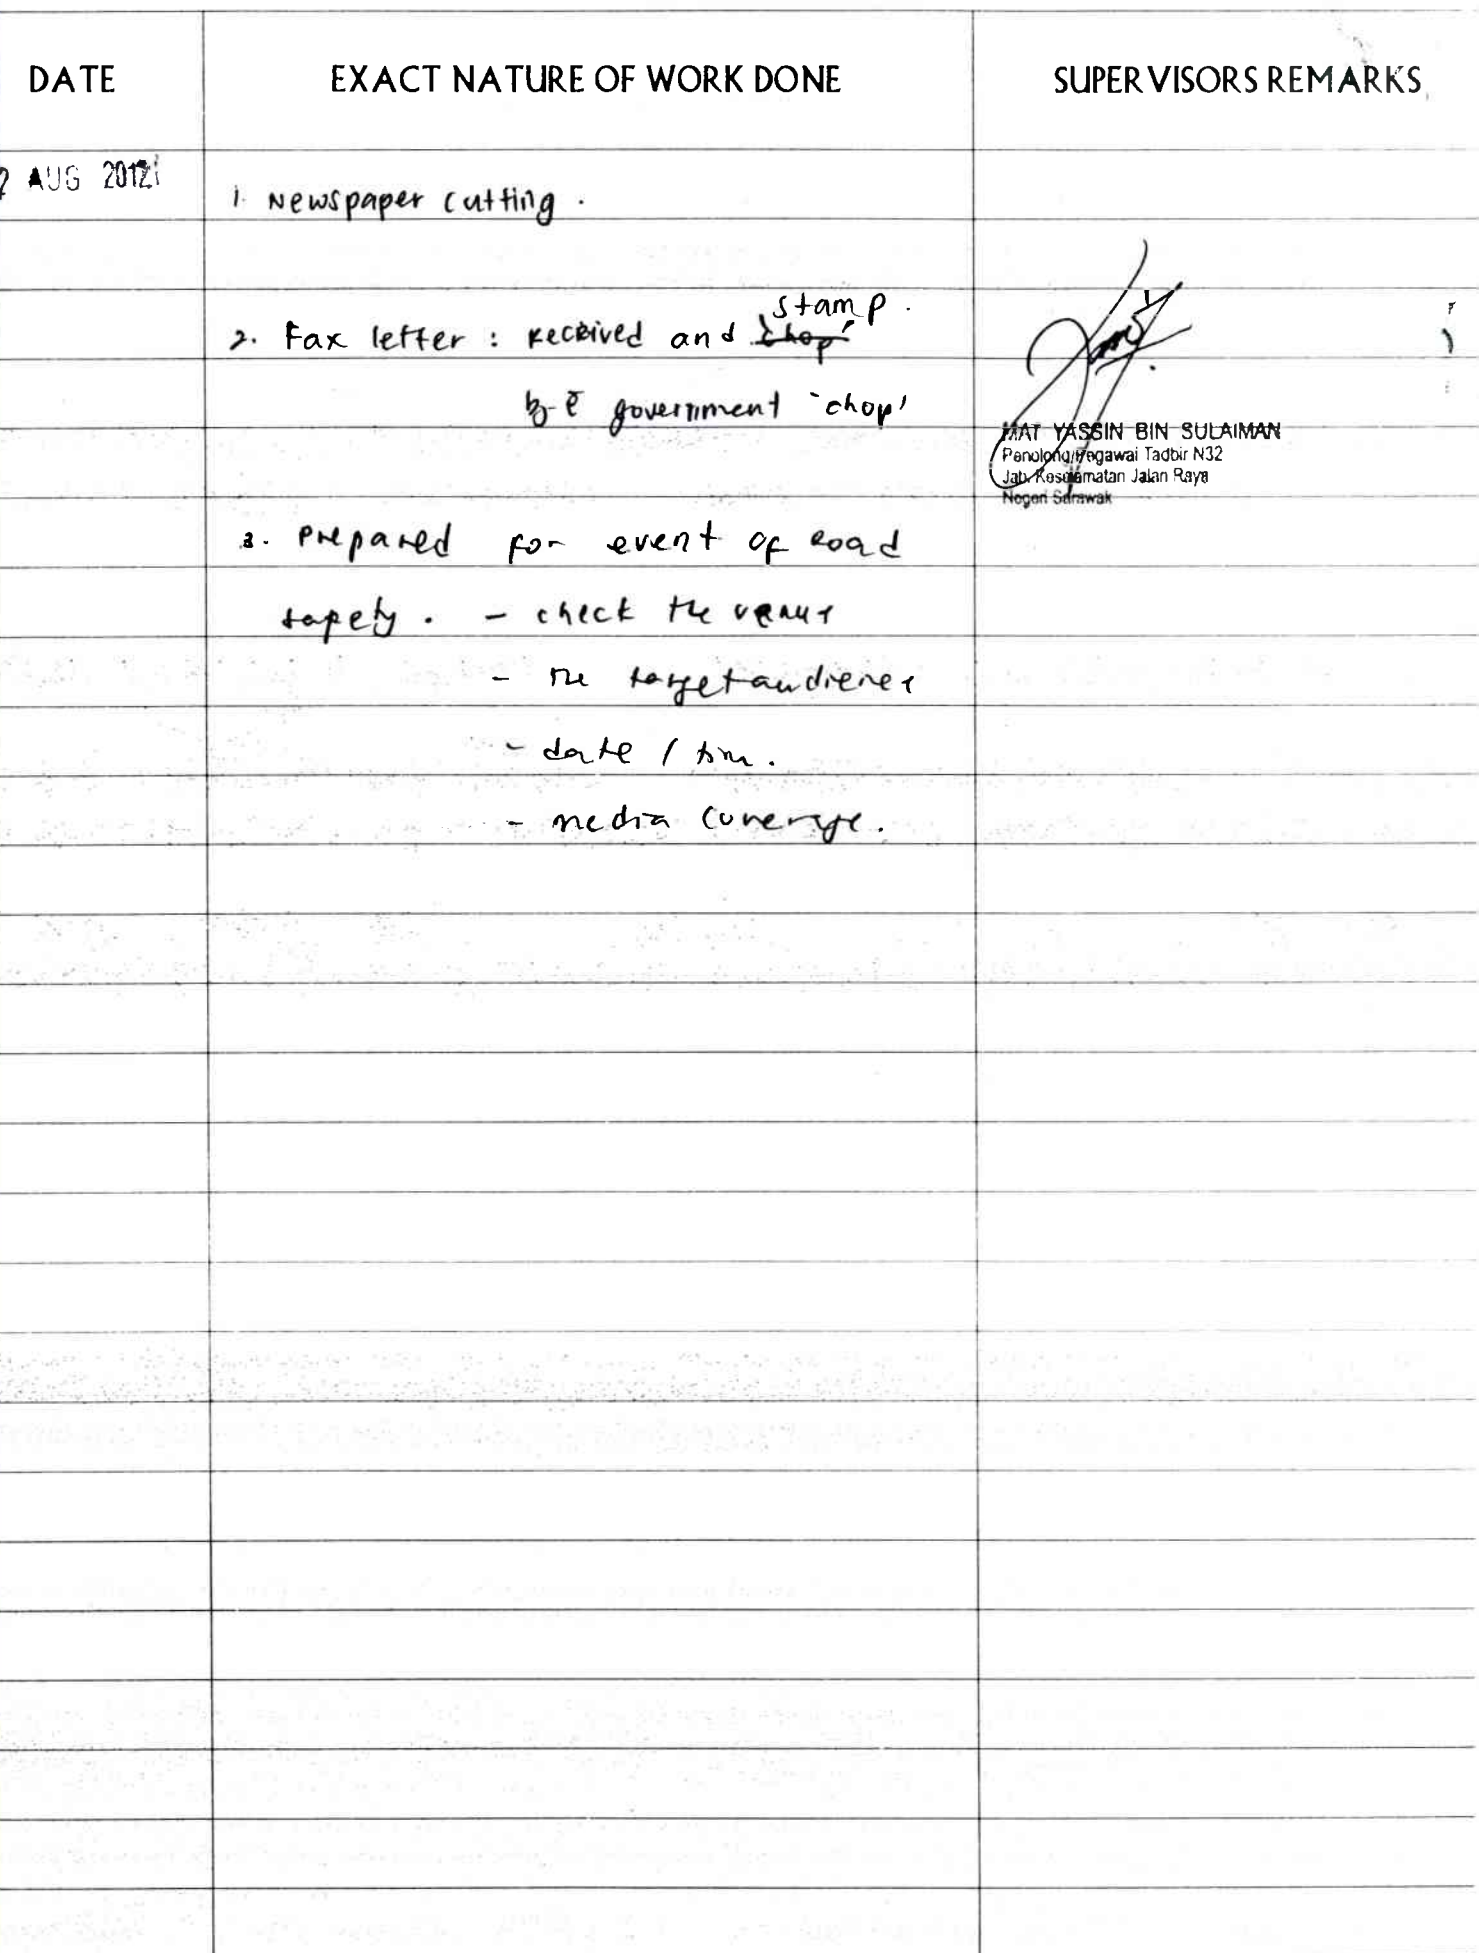 DATE EXACT NATURE OF WORK DONE SUPERVISORS REMARKS
2 AUG 2012
1. Newspaper cutting.
stamp.
2. Fax letter : Received and 'chop'
government 'chop'
MAT YASSIN BIN SULAIMAN
Penolong Pegawai Tadbir N32
Jab. Keselamatan Jalan Raya
Negeri Sarawak
3. Prepared for event of road
safety. - check the venue
- the target audience
- date / time.
- media coverage.